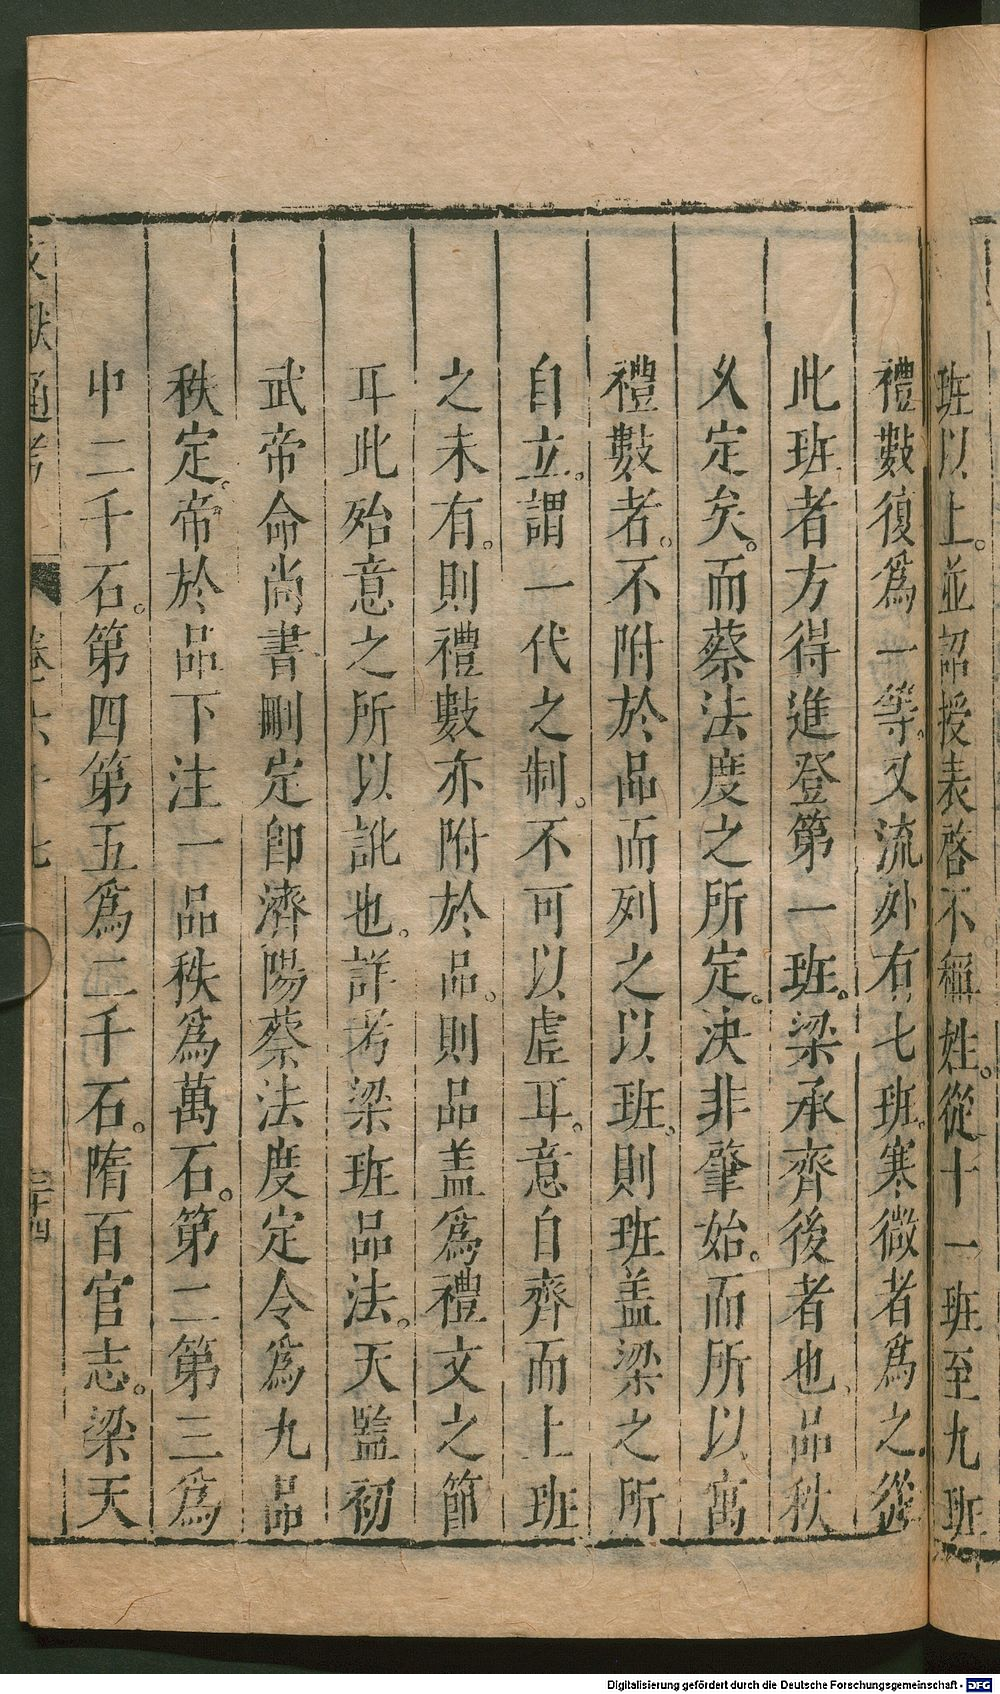 班以上。並詔授表啓不稱姓。從十一班至九班
禮數復爲一等。又流外有七班。寒微者爲之。從
此班者方得進登第一班。梁承齊後者也。品秩
久定矣。而蔡法度之所定。決非肇始。而所以寓
禮數者。不附於品而列之以班。則班盖梁之所
自立。謂一代之制。不可以虛耳。意自齊而上班
之未有。則禮數亦附於品。則品盖爲禮文之節
耳此殆意之所以訛也。詳考梁班品法。天監初
武帝命尚書刪定郎濟陽蔡法度定令爲九品
秩定。帝於品下注一品秩爲萬石。第二第三爲
中二千石。第四第五爲二千石。隋百官志。梁天
文獻通考 卷六十七 三十四
Digitalisierung gefördert durch die Deutsche Forschungsgemeinschaft - DFG